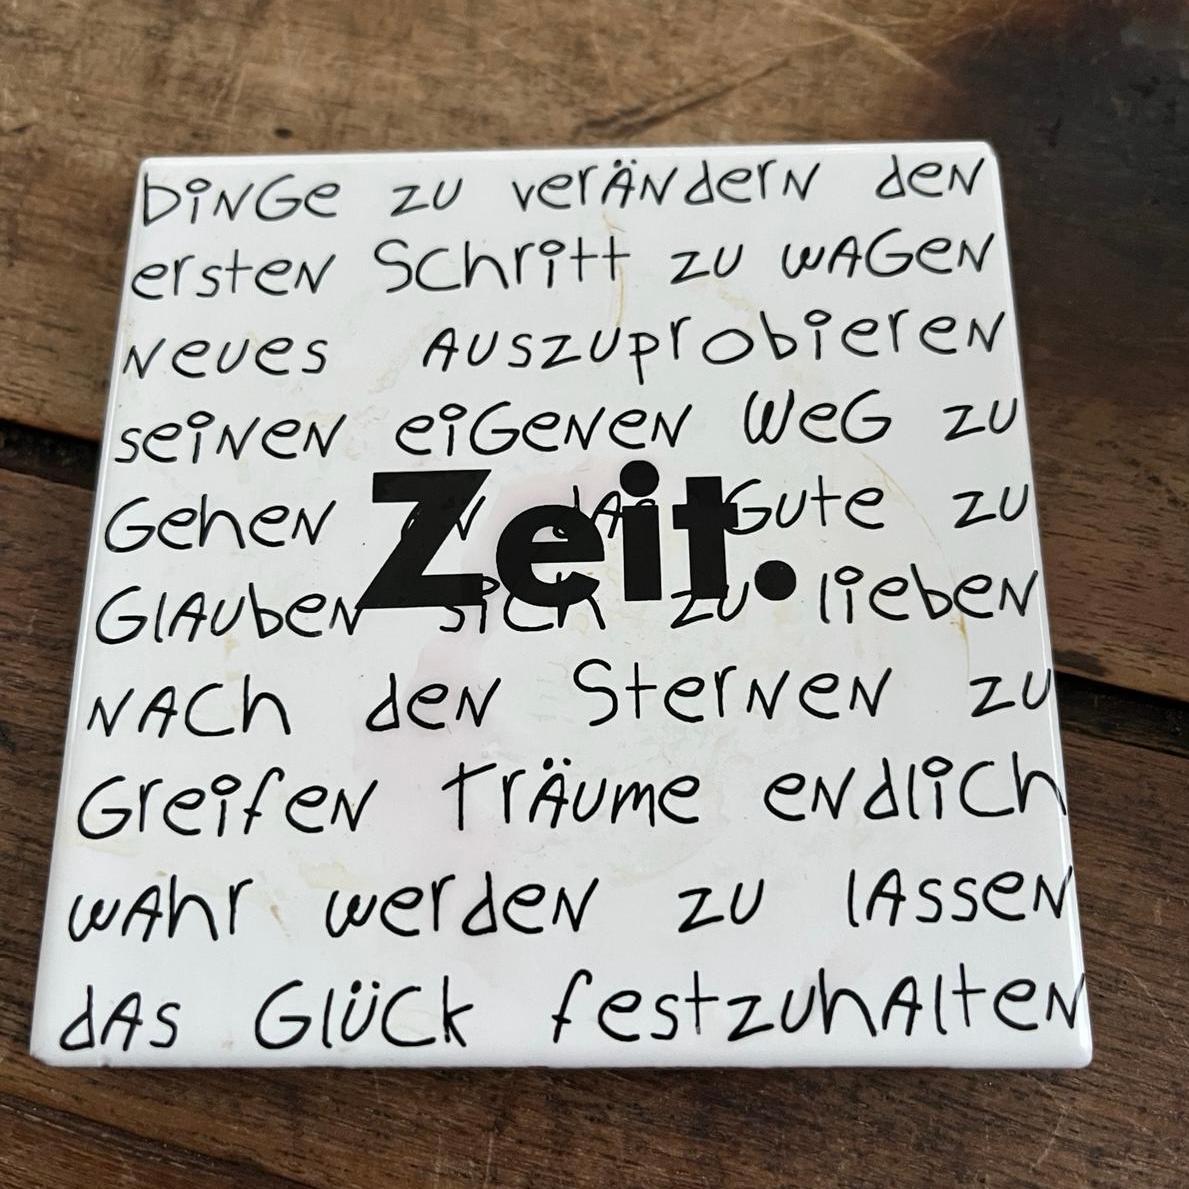 Dinge zu verändern den
ersten Schritt zu wagen
neues auszuprobieren
seinen eigenen Weg zu
Gehen an das Gute zu
Zeit.
Glauben sich zu lieben
nach den Sternen zu
Greifen Träume endlich
wahr werden zu lassen
das Glück festzuhalten